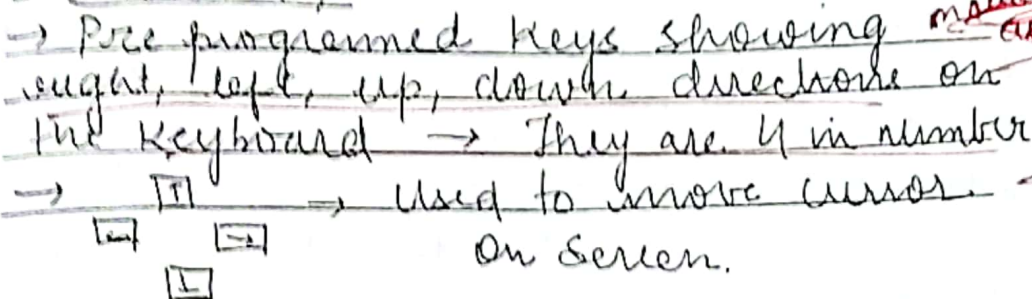 → Pre programmed keys showing
right, left, up, down directions on
the keyboard → They are 4 in number
→ [↑] → Used to move cursor
[←] [→] on screen.
[↓]